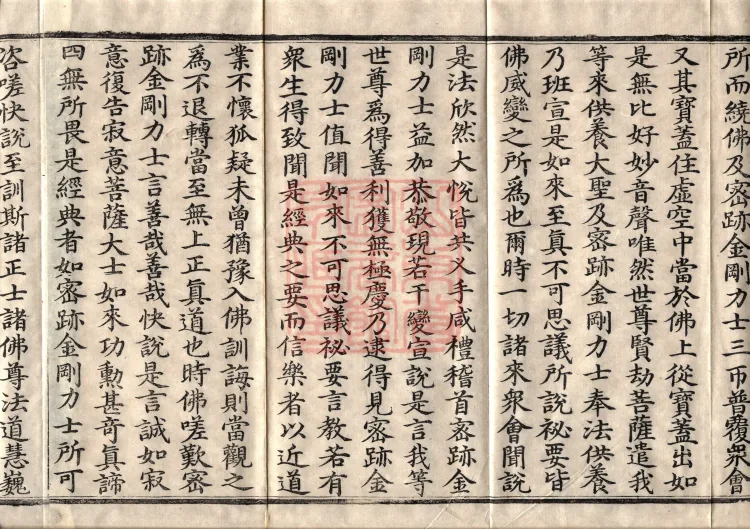 所而繞佛及密跡金剛力士三帀普覆眾會
又其寶蓋住虛空中當於佛上從寶蓋出如
是無比好妙音聲唯然世尊賢劫菩薩遣我
等來供養大聖及密跡金剛力士奉法供養
乃班宣是如來至真不可思議所說祕要皆
佛威變之所為也爾時一切諸來眾會聞說
是法欣然大悅皆共叉手咸禮稽首密跡金
剛力士益加恭敬現若干變宣說是言我等
世尊為得善利獲無極慶乃逮得見密跡金
剛力士值聞如來不可思議祕要言教若有
眾生得致聞是經典之要而信樂者以近道
業不懷狐疑未曾猶豫入佛訓誨則當觀之
為不退轉當至無上正真道也時佛嗟歎密
跡金剛力士言善哉善哉快說是言誠如寂
意復告寂意菩薩大士如來功勳甚奇真諦
四無所畏是經典者如密跡金剛力士所可
咨嗟快說至訓斯諸正士諸佛尊法道慧巍